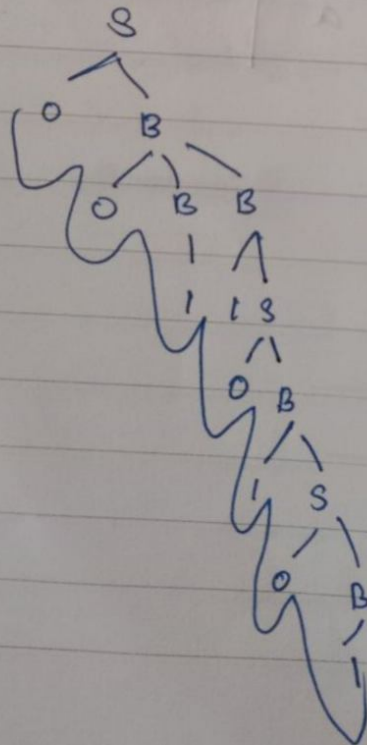 S
0 B
0 B B
1 1 S
0 B
1 S
0 B
1